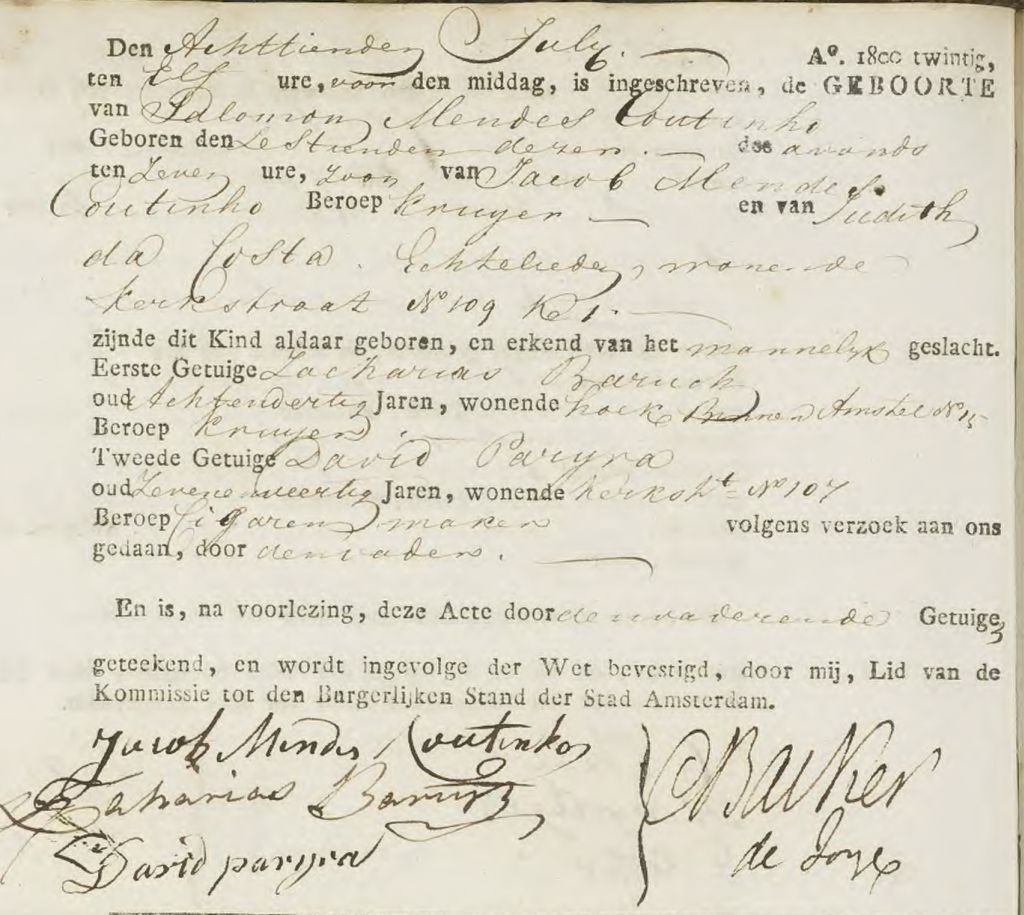 Den Achttienden July. A°. 1800 twintig,
ten Elf ure, voor den middag, is ingeschreven, de GEBOORTE
van Salomon Mendes Coutinho
Geboren den Sestienden dezer. des avonds
ten Zeven ure, Zoon van Jacob Mendes
Coutinho Beroep Kruyer en van Judith
da Costa. Echtelieden, wonende
Kerkstraat N° 109 K 1.
zijnde dit Kind aldaar geboren, en erkend van het mannelyk geslacht.
Eerste Getuige Zacharias Baruch
oud Achtendertig Jaren, wonende hoek Binnen Amstel N° 15
Beroep Kruyer.
Tweede Getuige David Paryra
oud Zevenenveertig Jaren, wonende Kerkst N° 107
Beroep Cigaren maker volgens verzoek aan ons
gedaan, door den vader.
En is, na voorlezing, deze Acte door den vader en de Getuige
geteekend, en wordt ingevolge der Wet bevestigd, door mij, Lid van de
Kommissie tot den Burgerlijken Stand der Stad Amsterdam.
Jacob Mendes Coutinho
Zaharias Baruch
David paryra
de